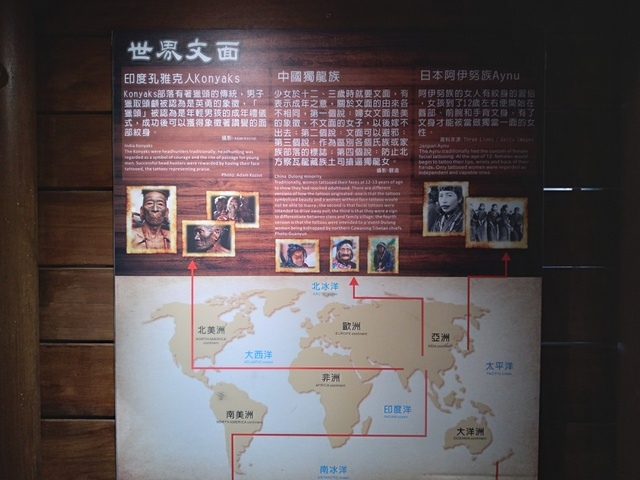 世界文面
印度孔雅克人Konyaks
Konyaks部落有著獵頭的傳統，男子
獵取頭顱被認為是英勇的象徵，「
獵頭」被認為是年輕男孩的成年禮儀
式，成功後可以獲得象徵著讚譽的面
部紋身。
India Konyaks
The Konyaks were headhunters traditionally, headhunting was
regarded as a symbol of courage and the rite of passage for young
men. Successful head hunters were rewarded by having their face
tattooed, the tattoos representing praise.
Photo: Adam Koziol
中國獨龍族
少女於十二、三歲時就要文面，有
表示成年之意，關於文面的由來各
不相同，第一個說，婦女文面是美
的象徵，不文面的女子，以後嫁不
出去；第二個說：文面可以避邪；
第三個說，作為區別各個氏族或家
族部落的標誌；第四個說，防止北
方察瓦龍藏族土司搶逼獨龍女。
China: Dulong minority
Traditionally, women tattooed their faces at 12-13 years of age
to show they had reached adulthood. There are different
versions of how the tattoo originated: one is that the tattoo
symbolized beauty and a women without face-tattoos would
not be able to marry; the second is that facial tattoos were
intended to drive away evil; the third is that they were a sign
to differentiate between clans and family village; the fourth
version is that the tattoos were intended to prevent Dulong
women being kidnapped by northern Cawarong Tibetan chiefs.
日本阿伊努族Aynu
阿伊努族的女人有紋身的習俗
，女孩到了12歲左右便開始在
唇部、前腕和手背文身，有了
文身才能被當做獨當一面的女
性。
Janpan Aynu
The Aynu traditionally had the custom of female
facial tattooing. At the age of 12, females would
begin to tattoo their lips, wrists and back of their
hands. Only tattooed women were regarded as
independent and capable ones.
北冰洋
北美洲
NORTH AMERICA continent
歐洲
EUROPE continent
亞洲
ASIA continent
大西洋
太平洋
非洲
AFRICA continent
南美洲
印度洋
大洋洲
OCEANIA continent
南冰洋